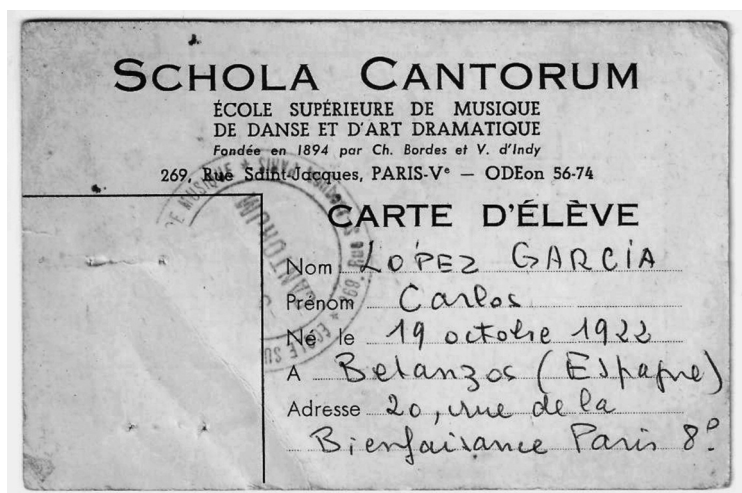 SCHOLA CANTORUM
ÉCOLE SUPÉRIEURE DE MUSIQUE
DE DANSE ET D'ART DRAMATIQUE
Fondée en 1894 par Ch. Bordes et V. d'Indy
269, Rue Saint-Jacques, PARIS-Vᵉ — ODEon 56-74
CARTE D'ÉLÈVE
Nom LOPEZ GARCÍA
Prénom Carlos
Né le 19 octobre 1922
A Betanzos (Espagne)
Adresse 20, rue de la
Bienfaisance Paris 8º